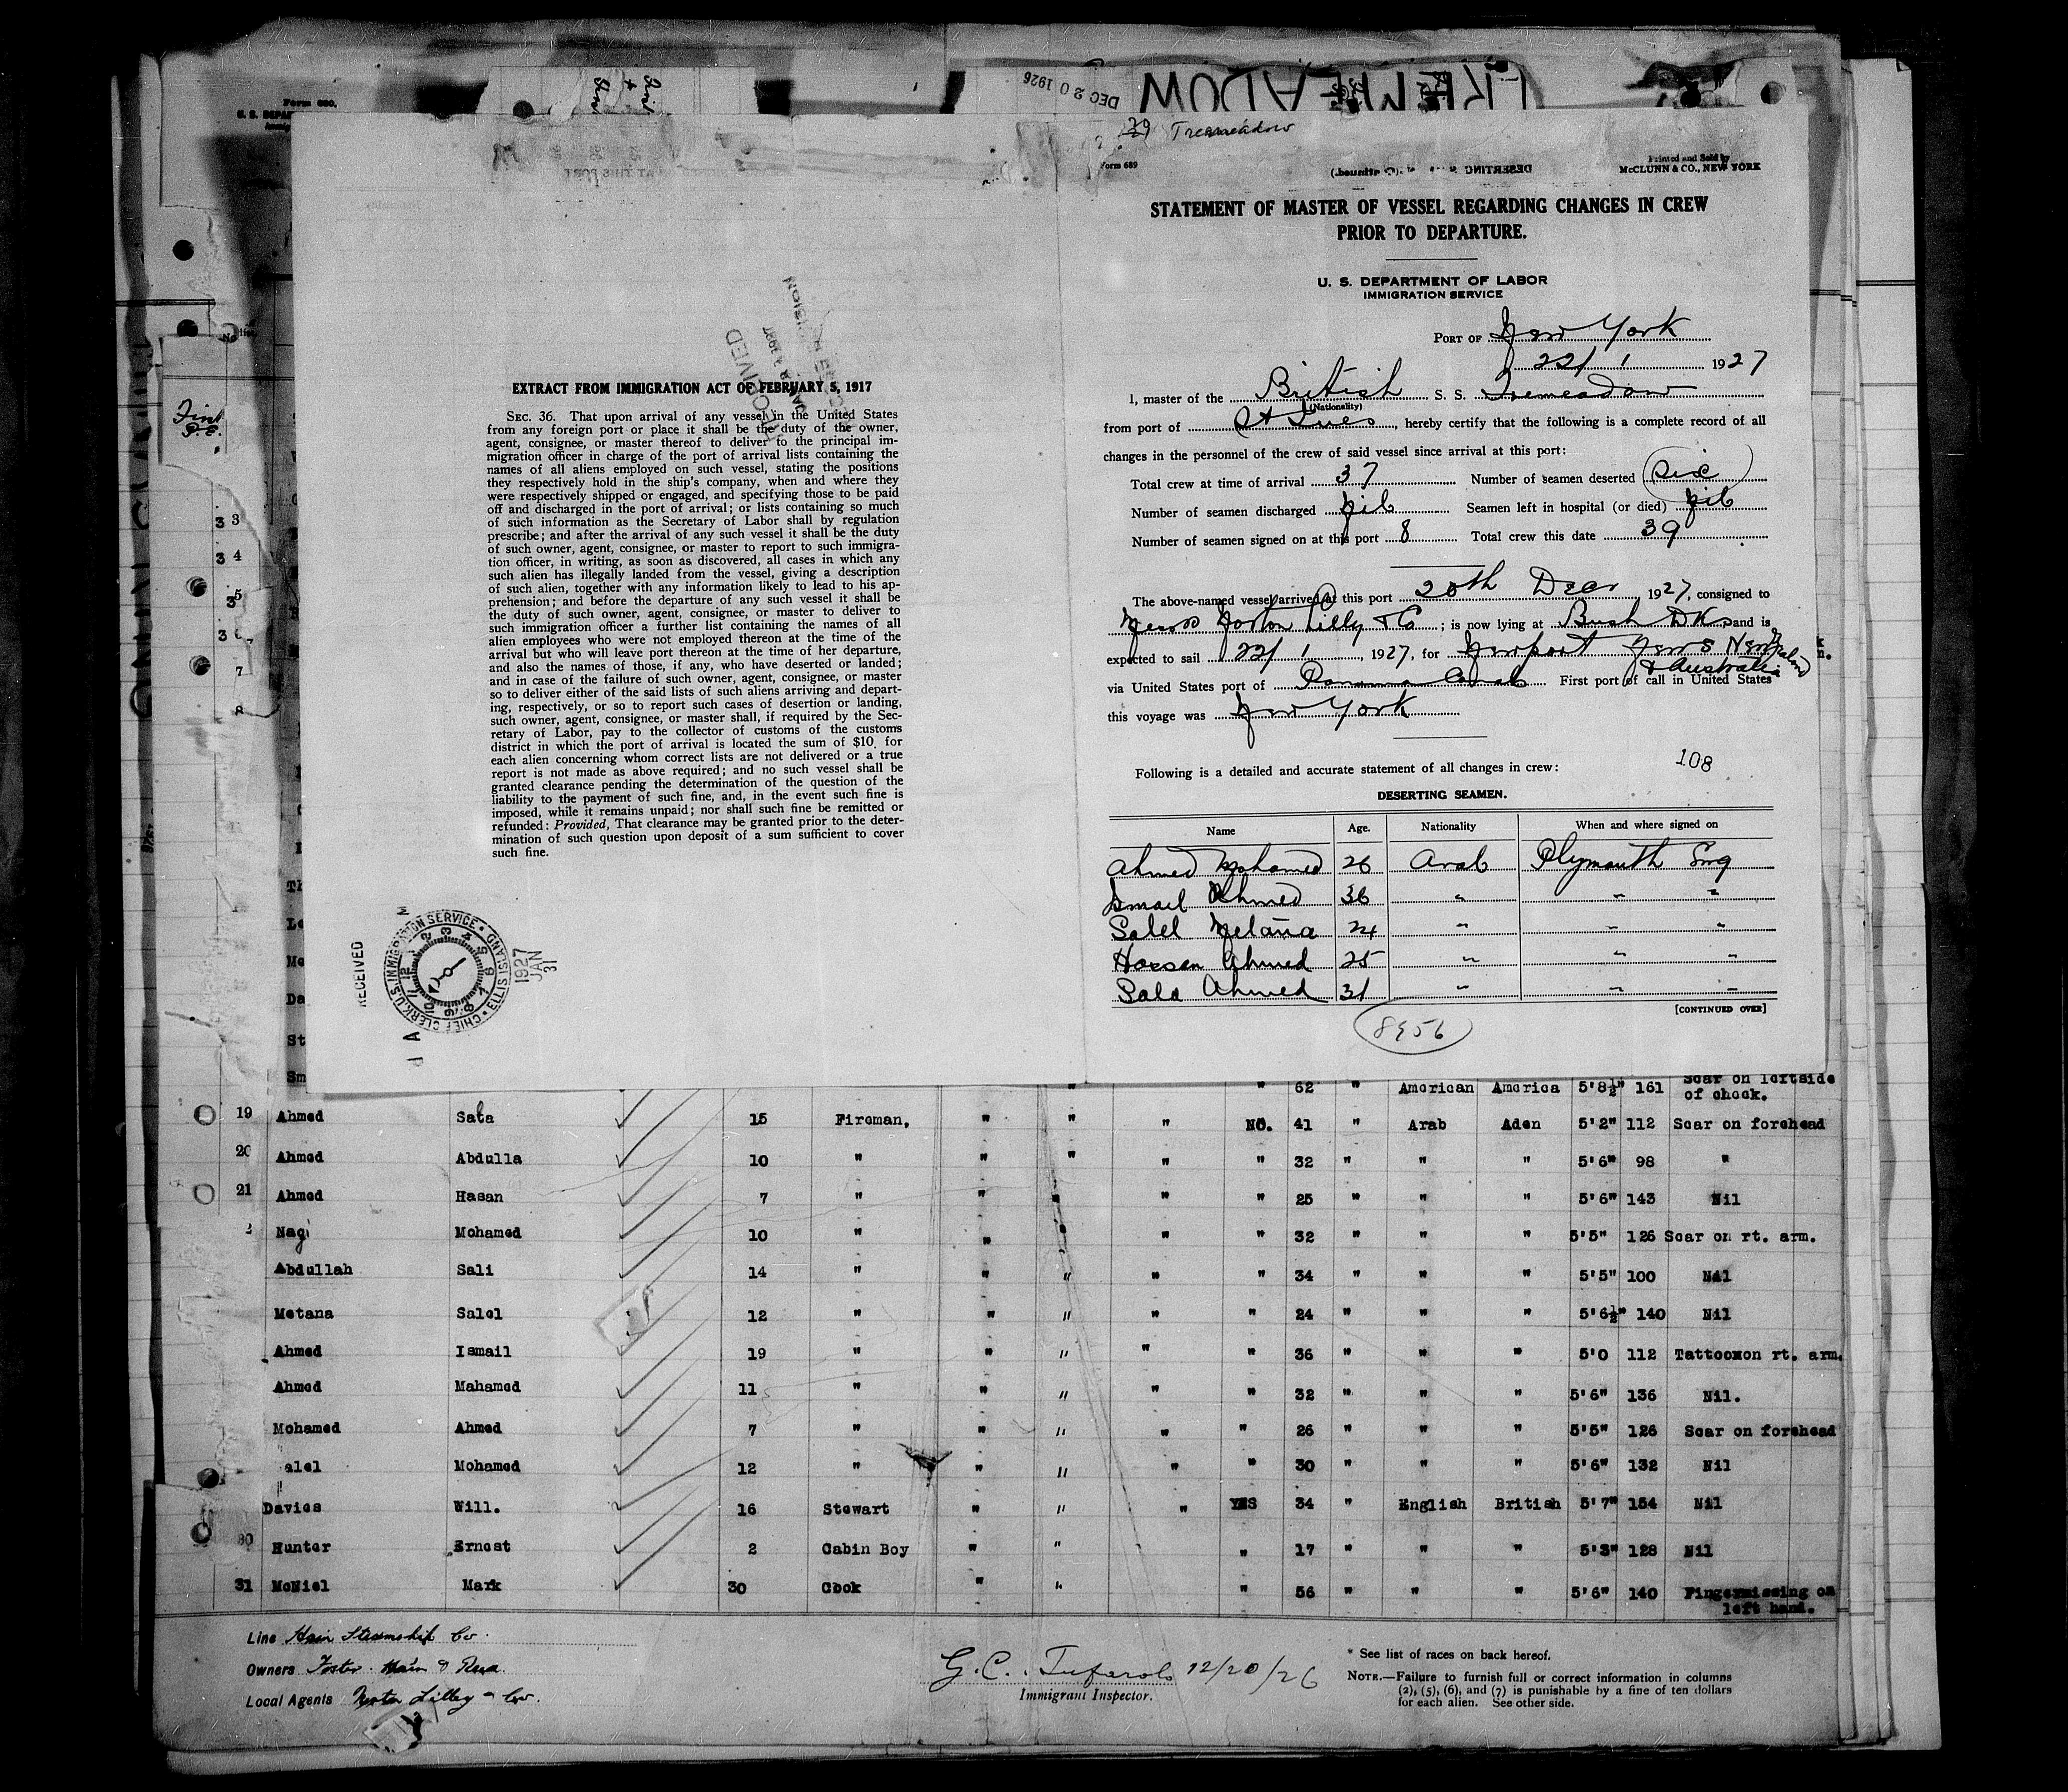 Form 680.
DEC 20 1926
TREMEADOW
Tremeadow
Form 689
Printed and Sold by
McCLUNN & CO., NEW YORK
STATEMENT OF MASTER OF VESSEL REGARDING CHANGES IN CREW
PRIOR TO DEPARTURE.
U. S. DEPARTMENT OF LABOR
IMMIGRATION SERVICE
PORT OF New York
22/1 1927
I, master of the British S. S. Tremeadow
(Nationality)
from port of St Ives, hereby certify that the following is a complete record of all
changes in the personnel of the crew of said vessel since arrival at this port:
Total crew at time of arrival 37 Number of seamen deserted six
Number of seamen discharged Nil Seamen left in hospital (or died) Nil
Number of seamen signed on at this port 8 Total crew this date 39
The above-named vessel arrived at this port 20th Decr 1927, consigned to
Messrs Norton Lilly & Co; is now lying at Bush DK, and is
expected to sail 22/1, 1927, for Newport News New Zealand
& Australia
via United States port of Panama Canal First port of call in United States
this voyage was New York
108
Following is a detailed and accurate statement of all changes in crew:
DESERTING SEAMEN.
Name Age. Nationality When and where signed on
Ahmed Mohamed 26 Arab Plymouth Eng
Ismail Ahmed 36 " " "
Salel Metana 24 " " "
Hassan Ahmed 25 " " "
Sala Ahmed 31 " " "
[CONTINUED OVER]
8956
EXTRACT FROM IMMIGRATION ACT OF FEBRUARY 5, 1917
SEC. 36. That upon arrival of any vessel in the United States
from any foreign port or place it shall be the duty of the owner,
agent, consignee, or master thereof to deliver to the principal im-
migration officer in charge of the port of arrival lists containing the
names of all aliens employed on such vessel, stating the positions
they respectively hold in the ship's company, when and where they
were respectively shipped or engaged, and specifying those to be paid
off and discharged in the port of arrival; or lists containing so much
of such information as the Secretary of Labor shall by regulation
prescribe; and after the arrival of any such vessel it shall be the duty
of such owner, agent, consignee, or master to report to such immigra-
tion officer, in writing, as soon as discovered, all cases in which any
such alien has illegally landed from the vessel, giving a description
of such alien, together with any information likely to lead to his ap-
prehension; and before the departure of any such vessel it shall be
the duty of such owner, agent, consignee, or master to deliver to
such immigration officer a further list containing the names of all
alien employees who were not employed thereon at the time of the
arrival but who will leave port thereon at the time of her departure,
and also the names of those, if any, who have deserted or landed;
and in case of the failure of such owner, agent, consignee, or master
so to deliver either of the said lists of such aliens arriving and depart-
ing, respectively, or so to report such cases of desertion or landing,
such owner, agent, consignee, or master shall, if required by the Sec-
retary of Labor, pay to the collector of customs of the customs
district in which the port of arrival is located the sum of $10 for
each alien concerning whom correct lists are not delivered or a true
report is not made as above required; and no such vessel shall be
granted clearance pending the determination of the question of the
liability to the payment of such fine, and, in the event such fine is
imposed, while it remains unpaid; nor shall such fine be remitted or
refunded: Provided, That clearance may be granted prior to the deter-
mination of such question upon deposit of a sum sufficient to cover
such fine.
RECEIVED
CHIEF CLERK, U.S. IMMIGRATION SERVICE • ELLIS ISLAND
1927
JAN
31
" " 62 " American America 5'8½" 161 Scar on leftside
of cheek.
19 Ahmed Sata 15 Fireman, " " " NO. 41 " Arab Aden 5'2" 112 Scar on forehead
20 Ahmed Abdulla 10 " " " " " 32 " " " 5'6" 98 "
21 Ahmed Hasan 7 " " " " " 25 " " " 5'6" 143 Nil
Nagi Mohamed 10 " " " " 32 " " " 5'5" 126 Scar on rt. arm.
Abdullah Sali 14 " " " " " 34 " " " 5'5" 100 Nil
Metana Salel 12 " " " " " 24 " " " 5'6½" 140 Nil
Ahmed Ismail 19 " " " " " 36 " " " 5'0 112 Tattooxon rt. arm.
Ahmed Mahamed 11 " " " " " 32 " " " 5'6" 136 Nil.
Mohamed Ahmed 7 " " " " " 26 " " " 5'5" 126 Scar on forehead
alel Mohamed 12 " " " " " 30 " " " 5'6" 132 Nil
Davies Will. 16 Stewart " " " YES 34 " English British 5'7" 154 Nil
30 Hunter Ernest 2 Cabin Boy " " " 17 " " " 5'3" 128 Nil
31 McNiel Mark 30 Cook " " " 56 " " " 5'6" 140 Fingermissing on
left hand.
Line Hain Steamship Co.
Owners Foster Hain & Read.
Local Agents Norton Lilley & Co.
12/20/26
Immigrant Inspector.
* See list of races on back hereof.
NOTE.—Failure to furnish full or correct information in columns
(2), (5), (6), and (7) is punishable by a fine of ten dollars
for each alien. See other side.